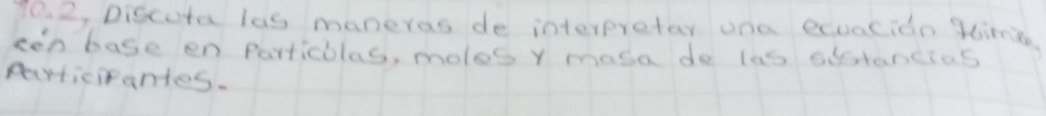 10.2, Discuta las maneras de interpretar una ecuación
con base en Particulas, moles y masa de las sustancias
Participantes.